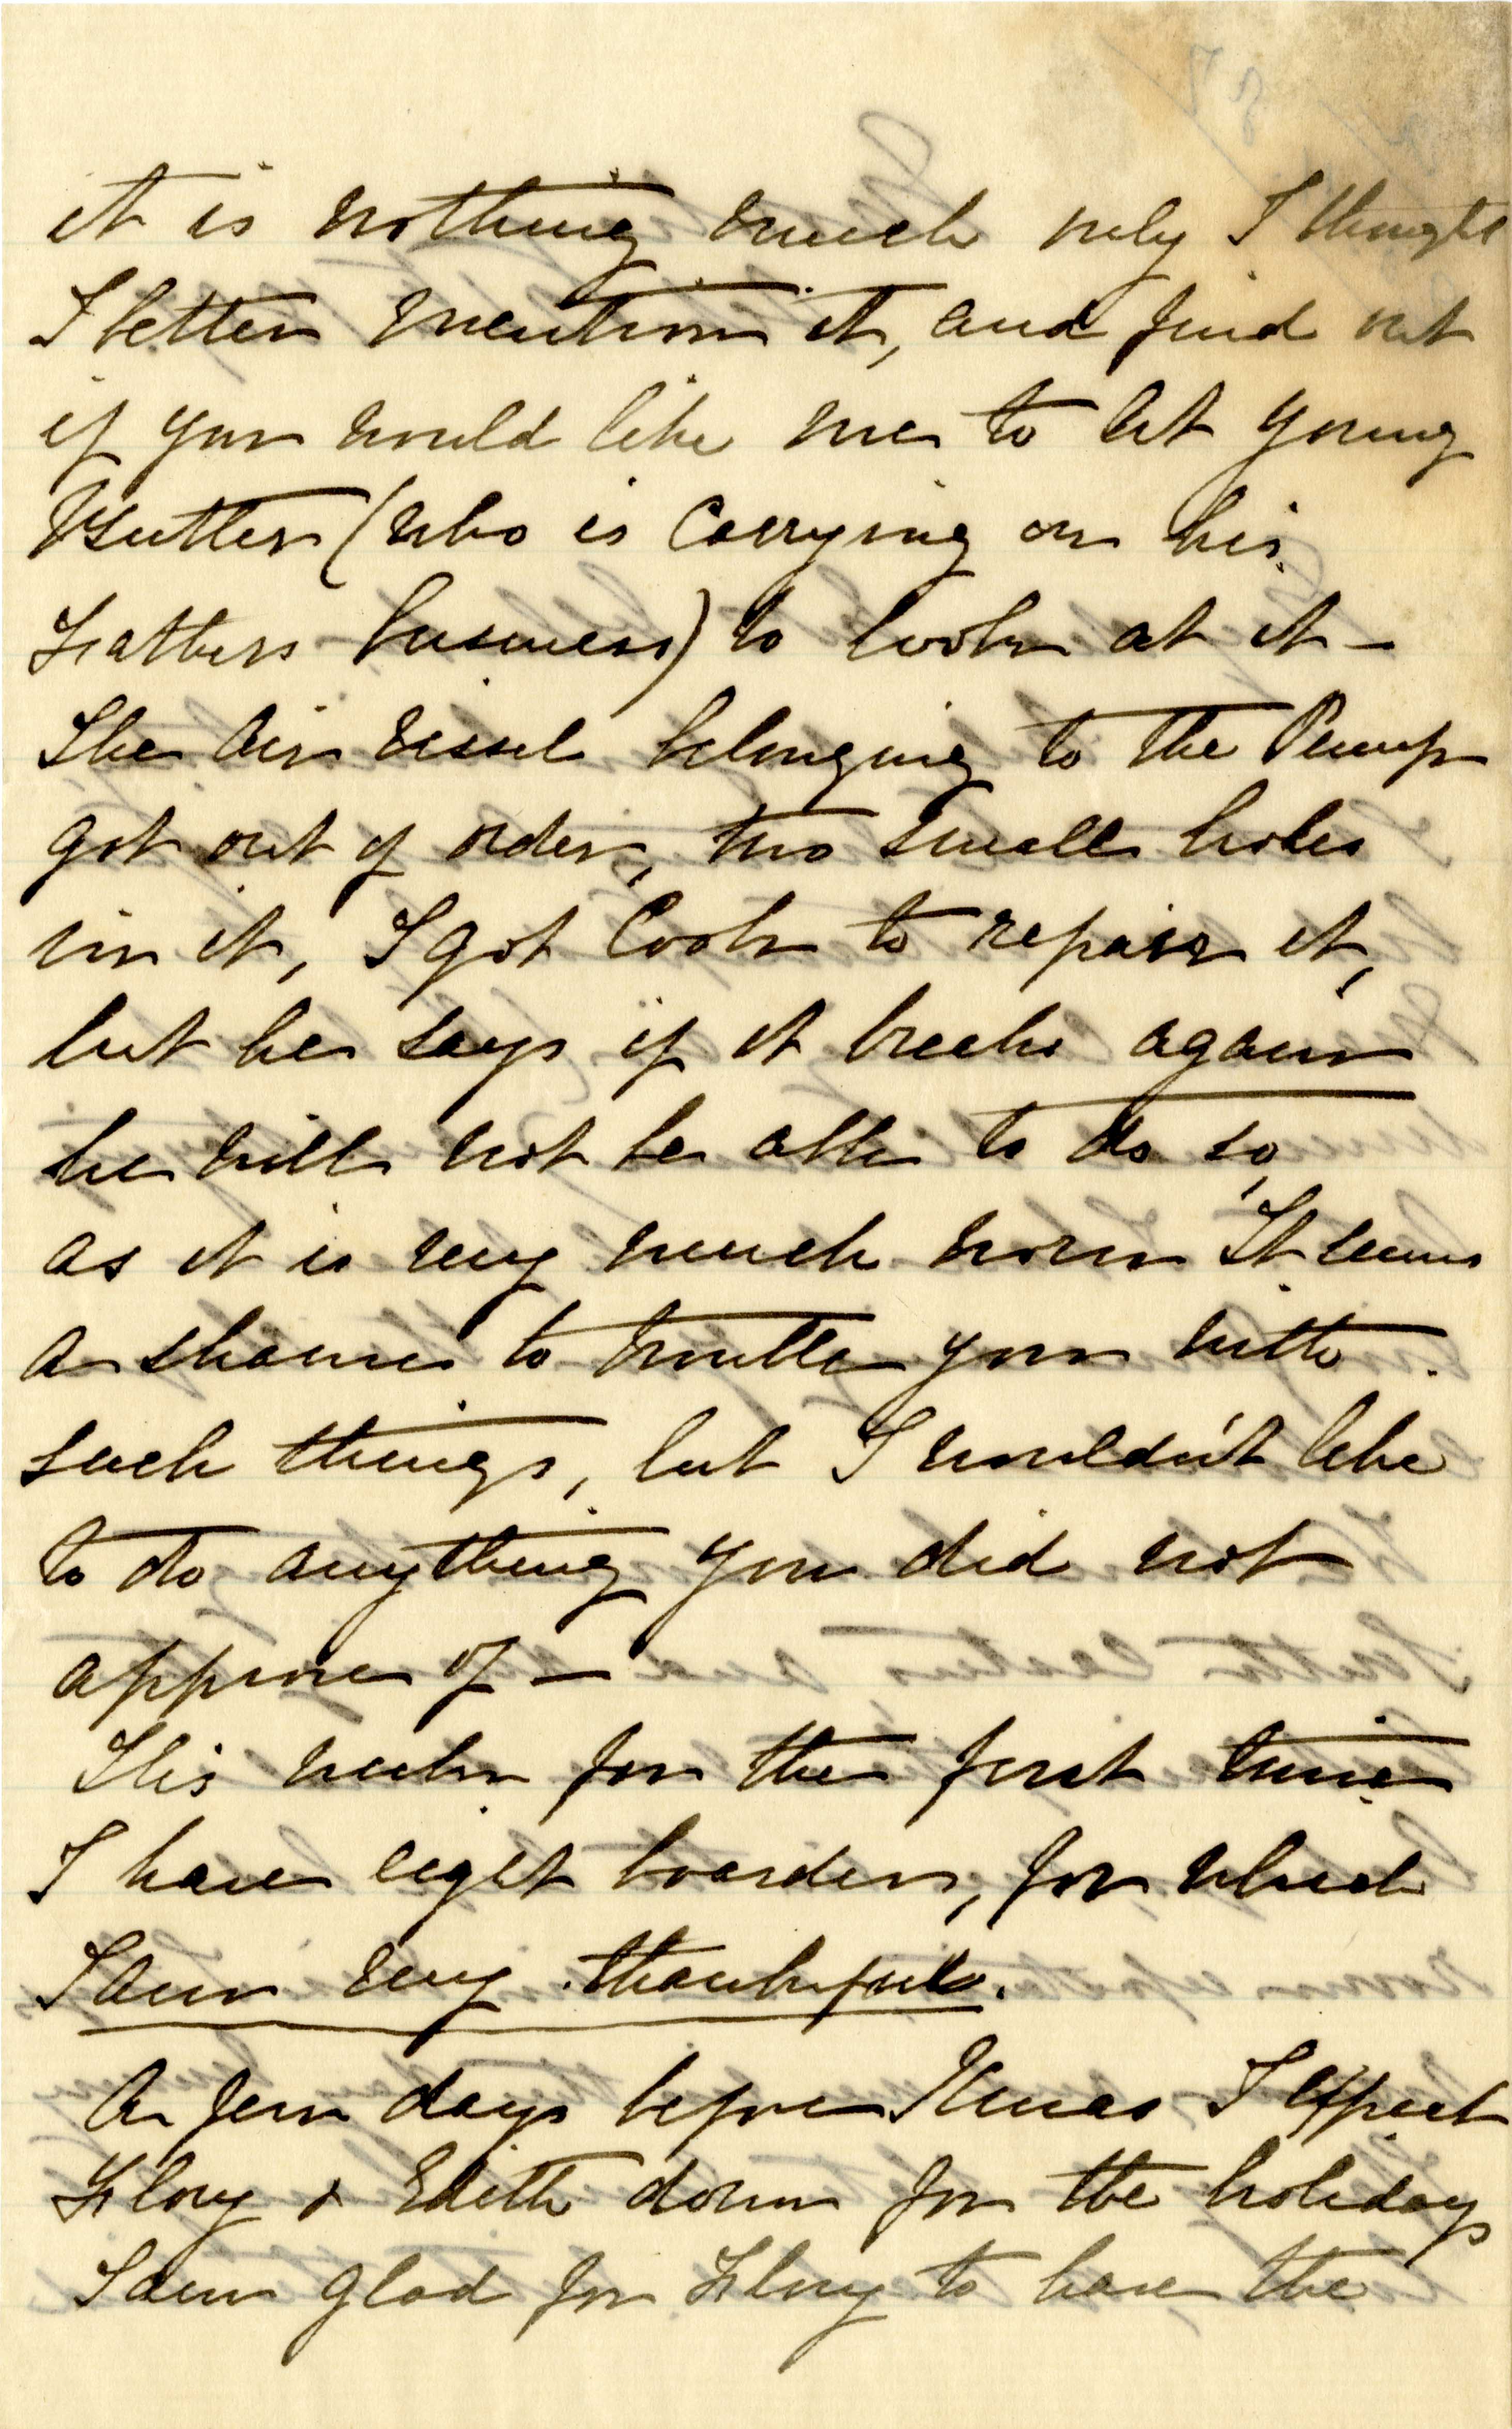 it is nothing much only I thought
I better mention it, and find out
if you would like me to let young
Butler (who is carrying on his
Fathers business) to look at it –
The Air Vessel belonging to the Pump
got out of order, two small holes
in it, I got Cook to repair it,
but he says if it breaks again
he will not be able to do so,
as it is very much worn. It seems
a shame to trouble you with
such things, but I wouldn't like
to do anything you did not
approve of –
This week for the first time
I have eight boarders, for which
I am very thankful.
A few days before Xmas I expect
Flory & Edith down for the holidays
I am glad for Flory to have the